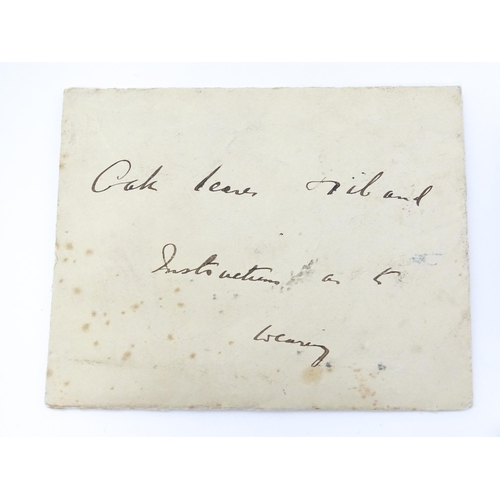 Oak leaves Riband
Instructions as to
wearing